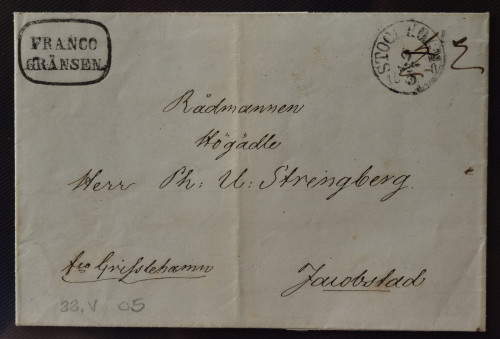 FRANCO
GRÄNSEN.
STOCKHOLM
Rådmannen
Högädle
Herr Ph: U: Strengberg.
fco Grisslehamn
Jacobstad
33. V 05